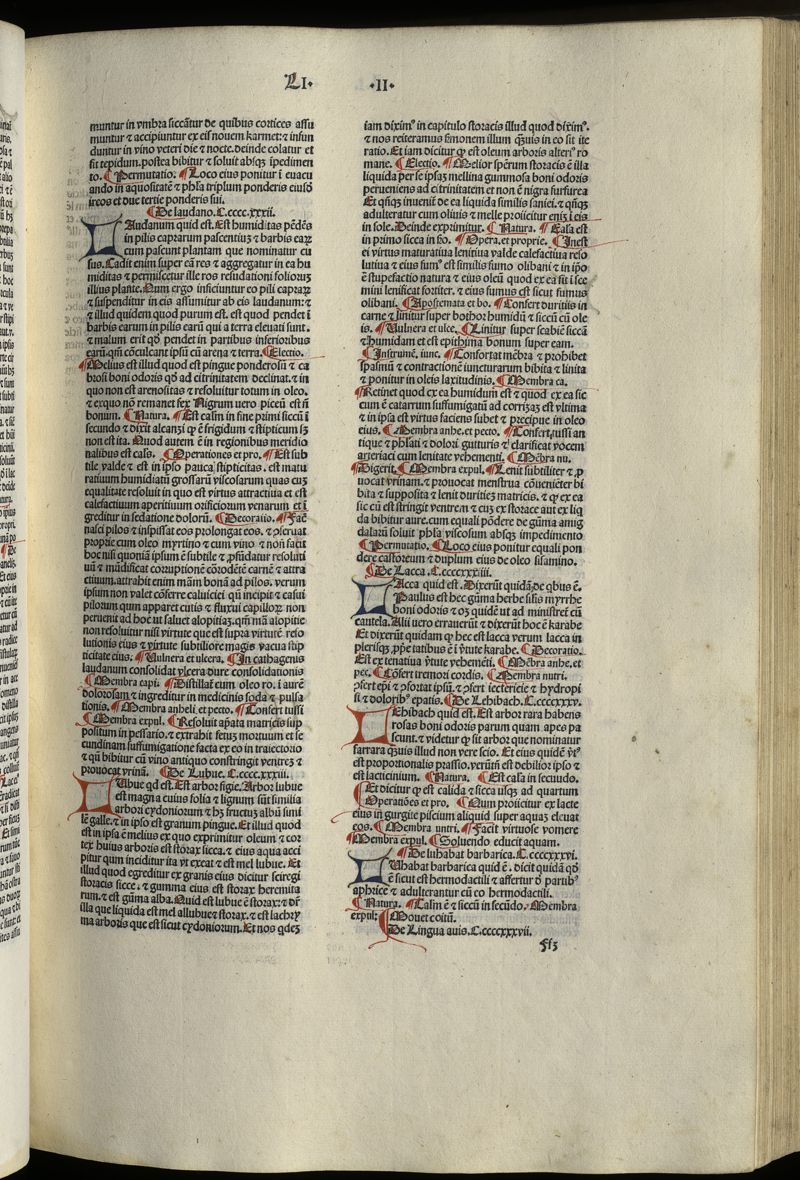 LI· ·II·
muntur in vmbra siccãtur de quibus cortices assu
muntur ⁊ accipiuntur ex eis nouem karmet: ⁊ infun
duntur in vino veteri die ⁊ nocte. deinde colatur et
sit tepidum. postea bibitur ⁊ soluit absq̃ ipedimen
to. ¶ Permutatio. ¶ Loco eius ponitur ĩ euacu
ando in aquositatẽ ⁊ phl̃a triplum ponderis eiusdẽ
ireos et due tertie ponderis sui.
¶ De laudano. C.cccc.xxxii.
LAudanum quid est. Est humiditas pẽdẽs
in pilis caprarum pascentiuꝫ ⁊ barbis earꝝ
cum pascunt plantam que nominatur cu
sus. Cadit enim super eã res ⁊ aggregatur in ea hu
miditas ⁊ permiscetur ille ros resudationi folioruꝫ
illius plante. Cum ergo inficiuntur eo pili caprarꝝ
⁊ suspenditur in eis assumitur ab eis laudanum: ⁊
est illud quidem quod purum est. est quod pendet ĩ
barbis earum in pilis earũ qui a terra eleuati sunt.
⁊ malum erit qđ pendet in partibus inferioribus
earũ. qm̃ cõculcant ipsũ cũ arena ⁊ terra. ¶ Electio.
¶ Melius est illud quod est pingue ponderosũ ⁊ ca
brosi boni odoris qđ ad citrinitatem declinat. ⁊ in
quo non est arenositas ⁊ resoluitur totum in oleo.
⁊ ex quo nõ remanet fex Nigrum uero piceũ est nõ
bonum. ¶ Natura. ¶ Est calm̃ in fine primi siccũ ĩ
secundo ⁊ dixit alcanzi ꝙ ẽ frigidum ⁊ stipticum sꝫ
non est ita. Quod autem ẽ in regionibus meridio
nalibus est cal̃s. ¶ Operationes et pro. ¶ Est sub
tile valde ⁊ est in ipso pauca stipticitas. est matu
ratiuum humiditatũ grossarũ viscosarum quas cuꝫ
equalitate resoluit in quo est virtus attractiua et est
calefactiuum aperitiuum orificiorum venarum et ĩ
greditur in sedatione dolorũ. ¶ Decoratio. ¶ Facit
nasci pilos ⁊ inspissat eos prolongat eos. ⁊ ꝯseruat
proprie cum oleo myrtino ⁊ cum vino ⁊ non facit
hoc nisi quoniã ipsum ẽ subtile ⁊ profũdatur resoluti
uũ ⁊ mũdificat corruptionẽ corrodẽtẽ carnẽ ⁊ attra
ctiuum. attrahit enim mãm bonã ad pilos. verum
ipsum non valet cõferre caluiciei qñ incipit ⁊ casui
pilorum quin apparet cutis ⁊ fluxui capillorꝝ non
peruenit ad hoc ut saluet alopitiaꝫ. qm̃ mã alopitie
non resoluitur nisi virtute que est supra virtutẽ reso
lutionis eius ⁊ virtute subtiliore magis vacua stip
ticitate eius. ¶ Vulnera et vlcera. ¶ In cathagenis
laudanum consolidat vlcera dure consolidationis
¶ Membra capi. ¶ Distillat̃ cum oleo ro. ĩ aurẽ
dolorosam ⁊ ingreditur in medicinis soda ⁊ pulsa
tionis. ¶ Membra anheli. et pecto. ¶ Confert tussi
¶ Membra expul. ¶ Resoluit apata matricis sup
positum in pessario. ⁊ extrahit fetuꝫ mortuum et se
cundinam suffumigatione facta ex eo in traiectorio
⁊ qñ bibitur cũ vino antiquo constringit ventreꝫ ⁊
prouocat vrinã. ¶ De Lubue. C.cccc.xxxiii.
LUbue qđ est. Est arbor figie. Arbor lubue
est magna cuius folia ⁊ lignum sũt similia
arbori cydoniorum ⁊ hꝫ fructuꝫ albũ simi
lẽ galle. ⁊ in ipso est granum pingue. Et illud quod
est in ipsa ẽ melius ex quo exprimitur oleum ⁊ cor
tex huius arboris est storax sicca. ⁊ eius aqua acci
pitur quin inciditur ita vt exeat ⁊ est mel lubue. Et
illud quod egreditur ex granis eius dicitur sciregi
storacis sicce. ⁊ gumma eius est storax heremita
rum. ⁊ est gũma alba. Quid est lubue ẽ storax: ⁊ dr̃
illa que liquida est mel allubueꝫ storax. ⁊ est lachry
ma arboris que est sicut cydoniorum. Et nos qdeꝫ
iam diximꝰ in capitulo storacis illud quod diximꝰ.
⁊ nos reiteramus sermonem illum quis in eo sit ite
ratio. Et iam dicitur ꝙ est oleum arboris alteriꝰ ro
mane. ¶ Electio. ¶ Melior sperum storacis ẽ illa
liquida per se ipsaꝫ mellina gummosa boni odoris
perueniens ad citrinitatem et non ẽ nigra furfurea
Et qñqꝫ inuenit̃ de ea liquida similis saniei. ⁊ qñqꝫ
adulteratur cum oliuis ⁊ melle proiicitur enim in eis
in sole. Deinde exprimitur. ¶ Natura. ¶ Ea sa est
in primo sicca in scdo. ¶ Opera. et proprie. ¶ Inest
ei virtus maturatiua lenitiua valde calefactiua reso
lutiua ⁊ eius fumꝰ est similis fumo olibani ⁊ in ipso
ẽ stupefactio natura ⁊ eius oleũ quod ex ea fit ĩ sce
mini lenificat fortiter. ⁊ eius fumus est sicut fumus
olibani. ¶ Apostemata et bo. ¶ Confert duritiis in
carne ⁊ linitur super bothor humidũ ⁊ siccũ cũ ole
is. ¶ Vulnera et vlce. ¶ Linitur super scabiẽ siccã
⁊ humidam et est epithima bonum super eam.
¶ Instrumẽ. iunc. ¶ Confortat mẽbra ⁊ prohibet
spasmũ ⁊ contractionẽ iuncturarum bibita ⁊ linita
⁊ ponitur in oleis laxitudinis. ¶ Membra ca.
¶ Retinet quod ex ea humidum est ⁊ quod ex ea sic
cum ẽ catarrum suffumigatũ ad corrizaꝫ est vltima
⁊ in ipsa est virtus faciens subet ⁊ precipue in oleo
eius. ¶ Membra anhe. et pecto. ¶ Confert tussi an
tique ⁊ phlati ⁊ dolori gutturis ⁊ clarificat vocem
arteriaci cum lenitate vehementi. ¶ Mẽbra nu.
¶ Digerit. ¶ Membra expul. ¶ Lenit subtiliter ⁊ ꝓ
uocat vrinam. ⁊ prouocat menstrua cõuenienter bi
bita ⁊ supposita ⁊ lenit duritieꝫ matricis. ⁊ ꝙ ex ea
sic cũ est stringit ventrem ⁊ cuꝫ ex storace aut ex liq̃
da bibitur aure. cum equali põdere de gũma amig
dalarũ soluit phl̃a viscosum absqꝫ impedimento
¶ Permutatio. ¶ Loco eius ponitur equali pon
dere castoreum ⁊ duplum eius de oleo sisamino.
¶ De Lacca. C.ccccxxxiiii.
LAcca quid est. Dixerũt quidã: de qbus ẽ.
Paulus est hec gũma herbe sil̃is myrrhe
boni odoris ⁊ oꝫ quidẽ ut ad ministret̃ cũ
cautela. Alii uero errauerũt ⁊ dixerũt hoc ẽ karabe
Et dixerũt quidam ꝙ hec est lacca verum lacca in
plerisqꝫ ꝓprietatibus ẽ ĩ virtute karabe. ¶ Decoratio.
Est extenatiua virtute vehemẽti. ¶ Mẽbra anhe. et
pec. ¶ Cõfert tremori cordis. ¶ Membra nutri.
ꝯfert epi ⁊ ꝯfortat ipsũ. ⁊ ꝯfert ictericie ⁊ hydropi
si ⁊ doloribꝰ epatis. ¶ De Lehibach. C.ccccxxxv.
LEhibach quid est. Est arbor rara habens
rosas boni odoris parum quam apes pa
scunt. ⁊ videtur ꝙ sit arbor que nominatur
farrara quis illud non vere scio. Et eius quidẽ virtꝰ
est proportionalis prassio. verũtñ est debilior ipso ⁊
est lacticinium. ¶ Natura. ¶ Est cal̃a in secundo.
Et dicitur ꝙ est calida ⁊ sicca usqꝫ ad quartum
¶ Operatões et pro. ¶ Cum proiicitur ex lacte
eius in gurgite piscium aliquid super aquaꝫ eleuat
eos. ¶ Membra nutri. ¶ Facit virtuose vomere
¶ Membra expul. ¶ Soluendo educit aquam.
¶ De luhabat barbarica. C.ccccxxxvi.
LUhabat barbarica quid ẽ. dicit quidã qđ
ẽ sicut est hermodactili ⁊ affertur de partibꝰ
aphrice ⁊ adulterantur cũ eo hermodactili.
¶ Natura. ¶ Calm̃ ẽ ⁊ siccũ in secũdo. ¶ Membra
expul: ¶ Mouet coitũ.
¶ De Lingua auis. C.ccccxxxvii.